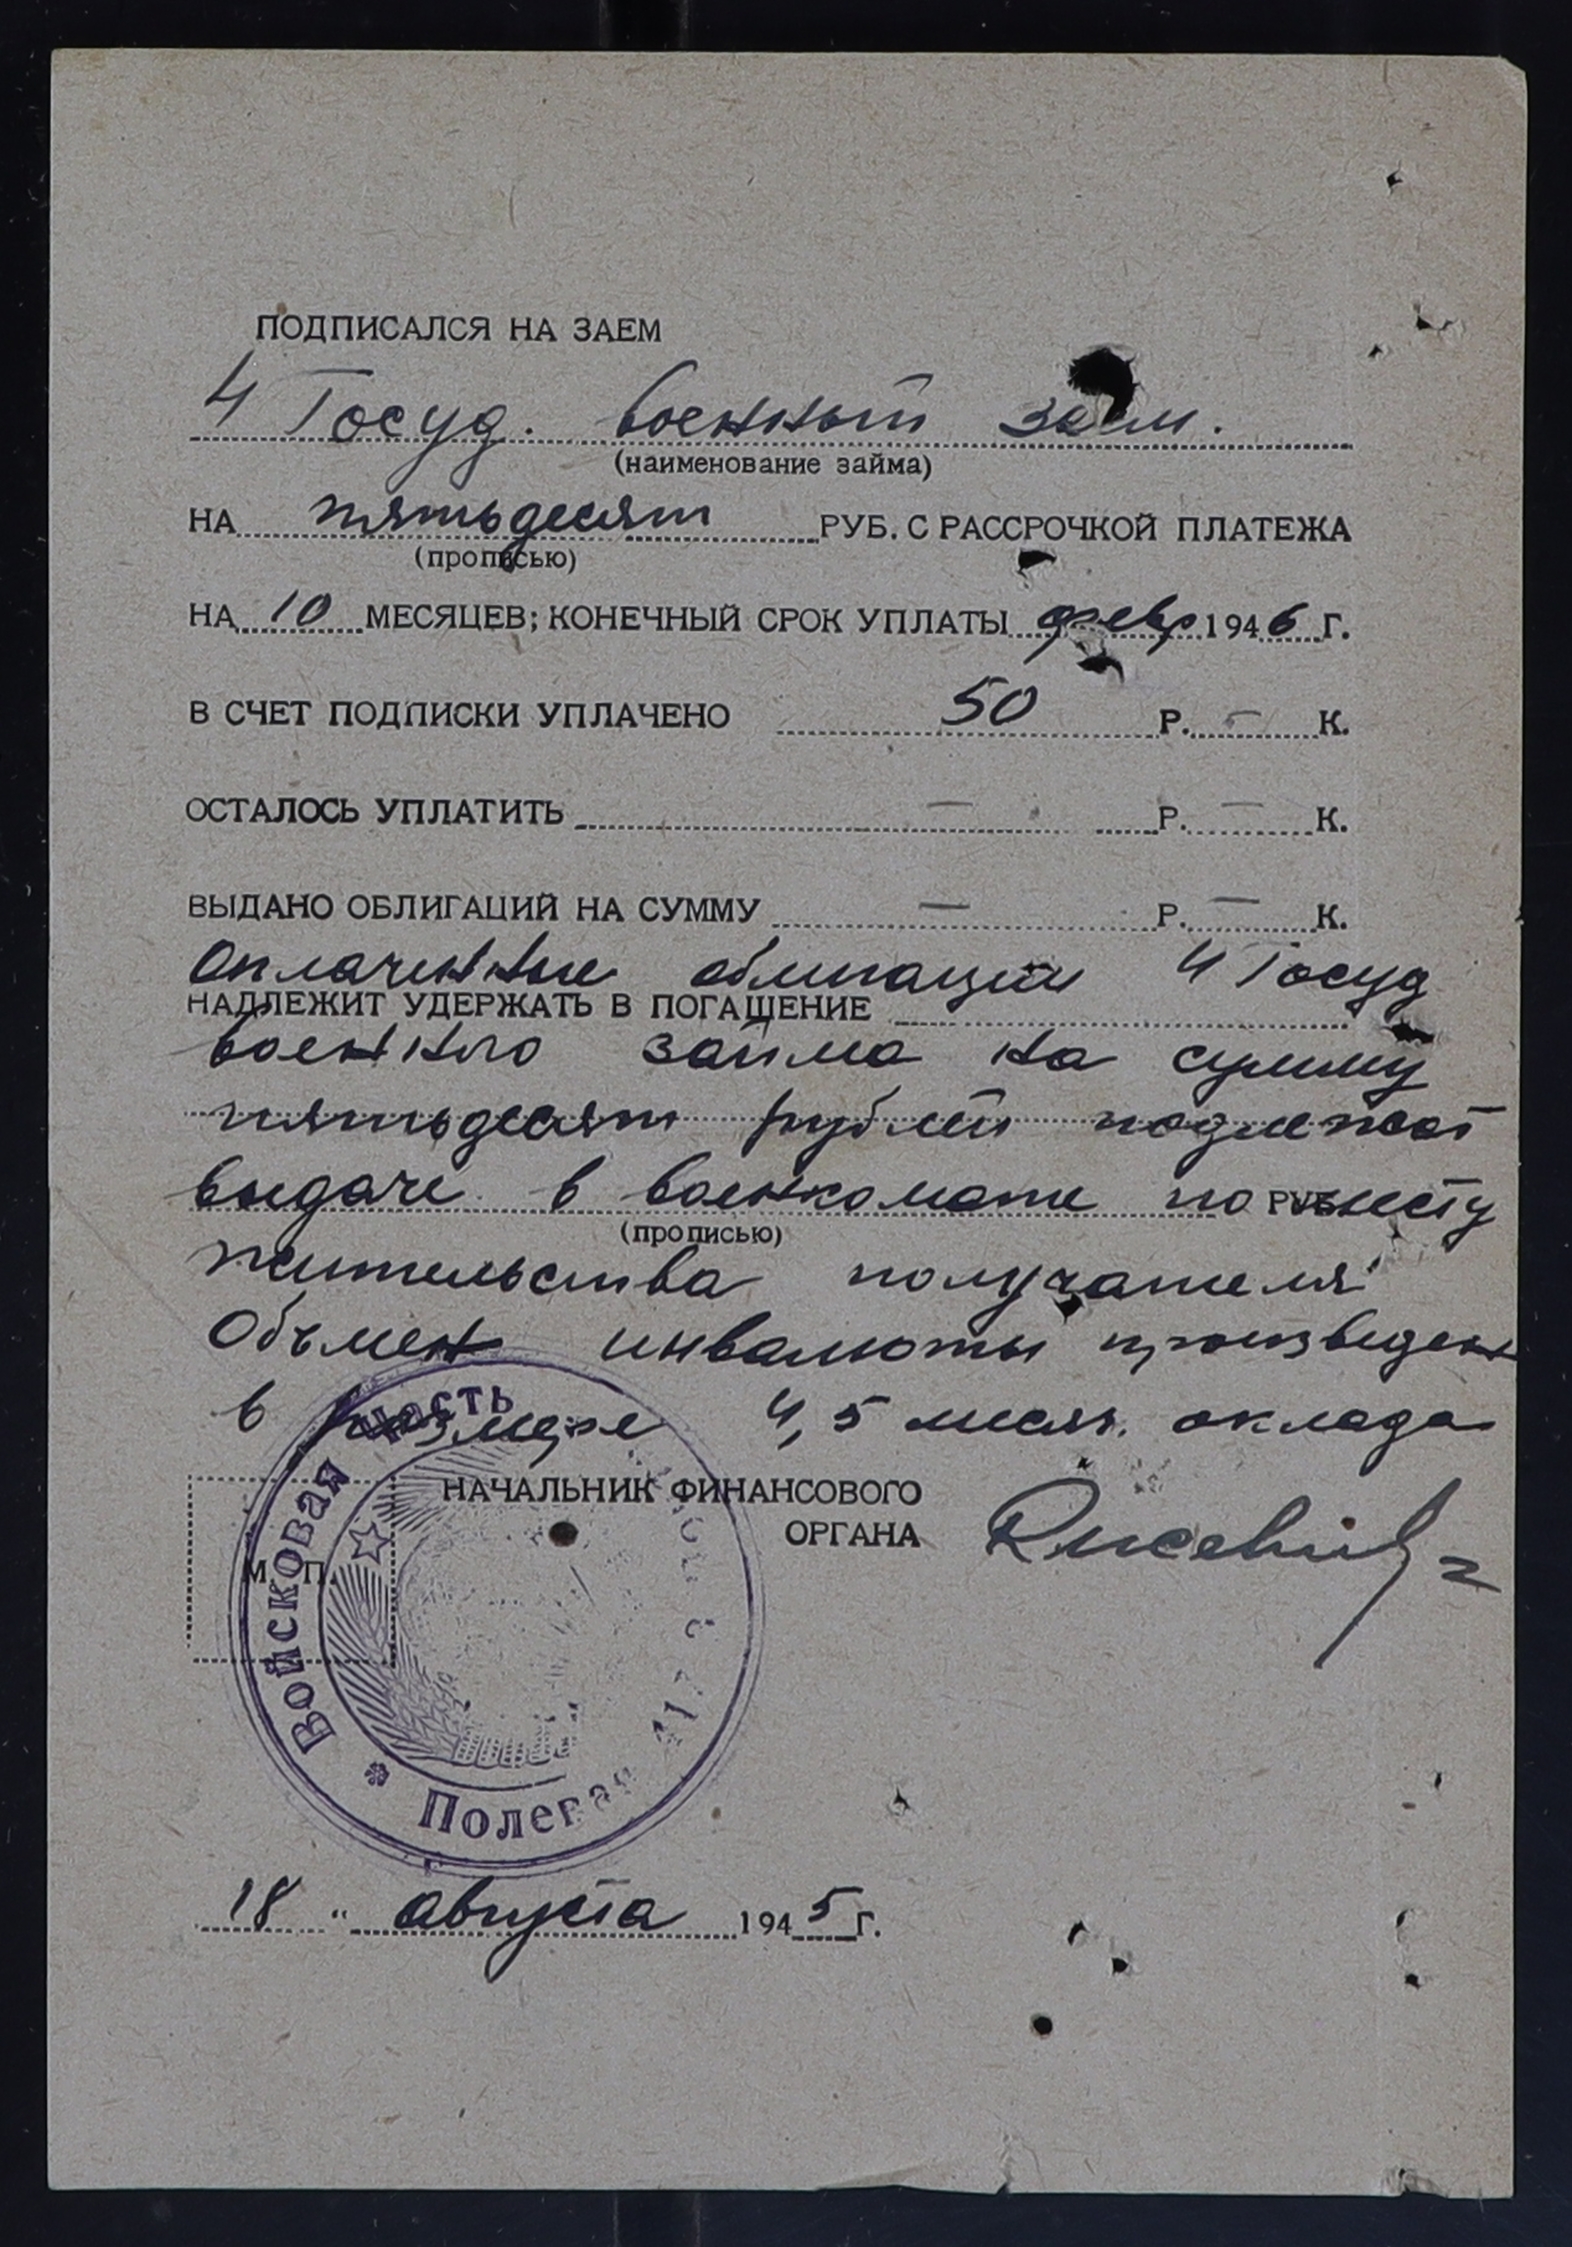 ПОДПИСАЛСЯ НА ЗАЕМ
4 Госуд. военный заем.
(наименование займа)
НА пятьдесят РУБ. С РАССРОЧКОЙ ПЛАТЕЖА
(прописью)
НА 10 МЕСЯЦЕВ; КОНЕЧНЫЙ СРОК УПЛАТЫ февр 1946 Г.
В СЧЕТ ПОДПИСКИ УПЛАЧЕНО 50 Р. — К.
ОСТАЛОСЬ УПЛАТИТЬ — Р. — К.
ВЫДАНО ОБЛИГАЦИЙ НА СУММУ — Р. — К.
Оплаченные облигации 4 Госуд
НАДЛЕЖИТ УДЕРЖАТЬ В ПОГАШЕНИЕ
военного займа на сумму
пятьдесят рублей подлежат
выдаче в военкомате по месту
РУБ
(прописью)
жительства получателя
Объмен инвалюты произведен
в размере 4,5 месяч. оклада
НАЧАЛЬНИК ФИНАНСОВОГО
ОРГАНА
М. П.
Войсковая часть
* Полевая
18 " августа 1945 Г.